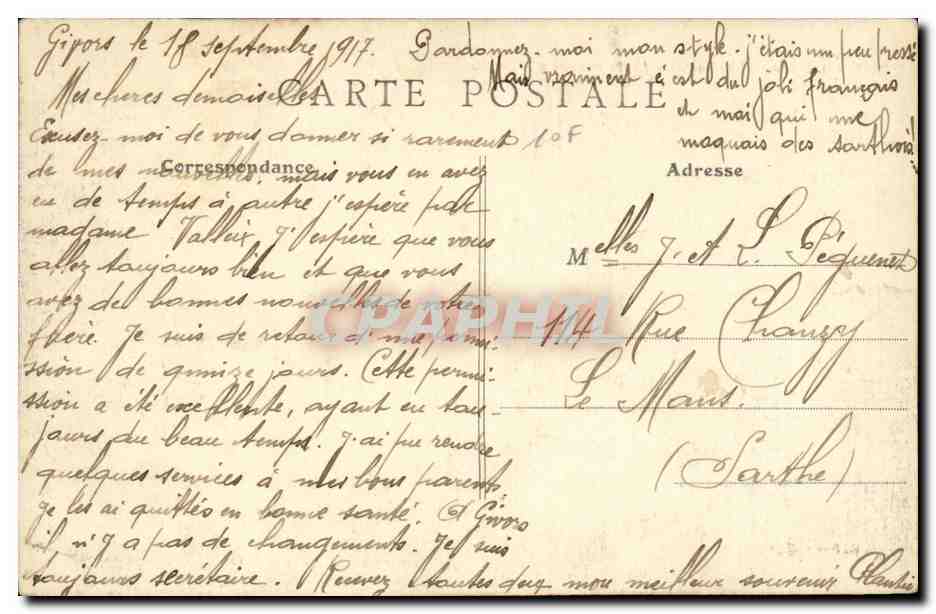 Givors le 18 septembre 1917.
Mes chères demoiselles
Excusez-moi de vous donner si rarement
de mes nouvelles. mais vous en avez
eu de temps à autre j'espère par
madame Valleix. J'espère que vous
allez toujours bien et que vous
avez de bonnes nouvelles de votre
frère. Je suis de retour d'une permi-
ssion de quinze jours. Cette permi-
ssion a été excellente, ayant eu tou-
jours du beau temps. J'ai pu rendre
quelques services à mes bons parents
je les ai quittés en bonne santé. A Givors
il n'y a pas de changements. Je suis
toujours secrétaire. Recevez toutes deux mon meilleur souvenir
Pardonnez-moi mon style. j'étais un peu pressé
Mais vraiment c'est du joli français
et moi qui me
moquais des sarthois!
CARTE POSTALE
10F
Correspondance
Adresse
Melles J. et L. Pequenet
114 Rue Chanzy
Le Mans.
(Sarthe)
CPAPHIL